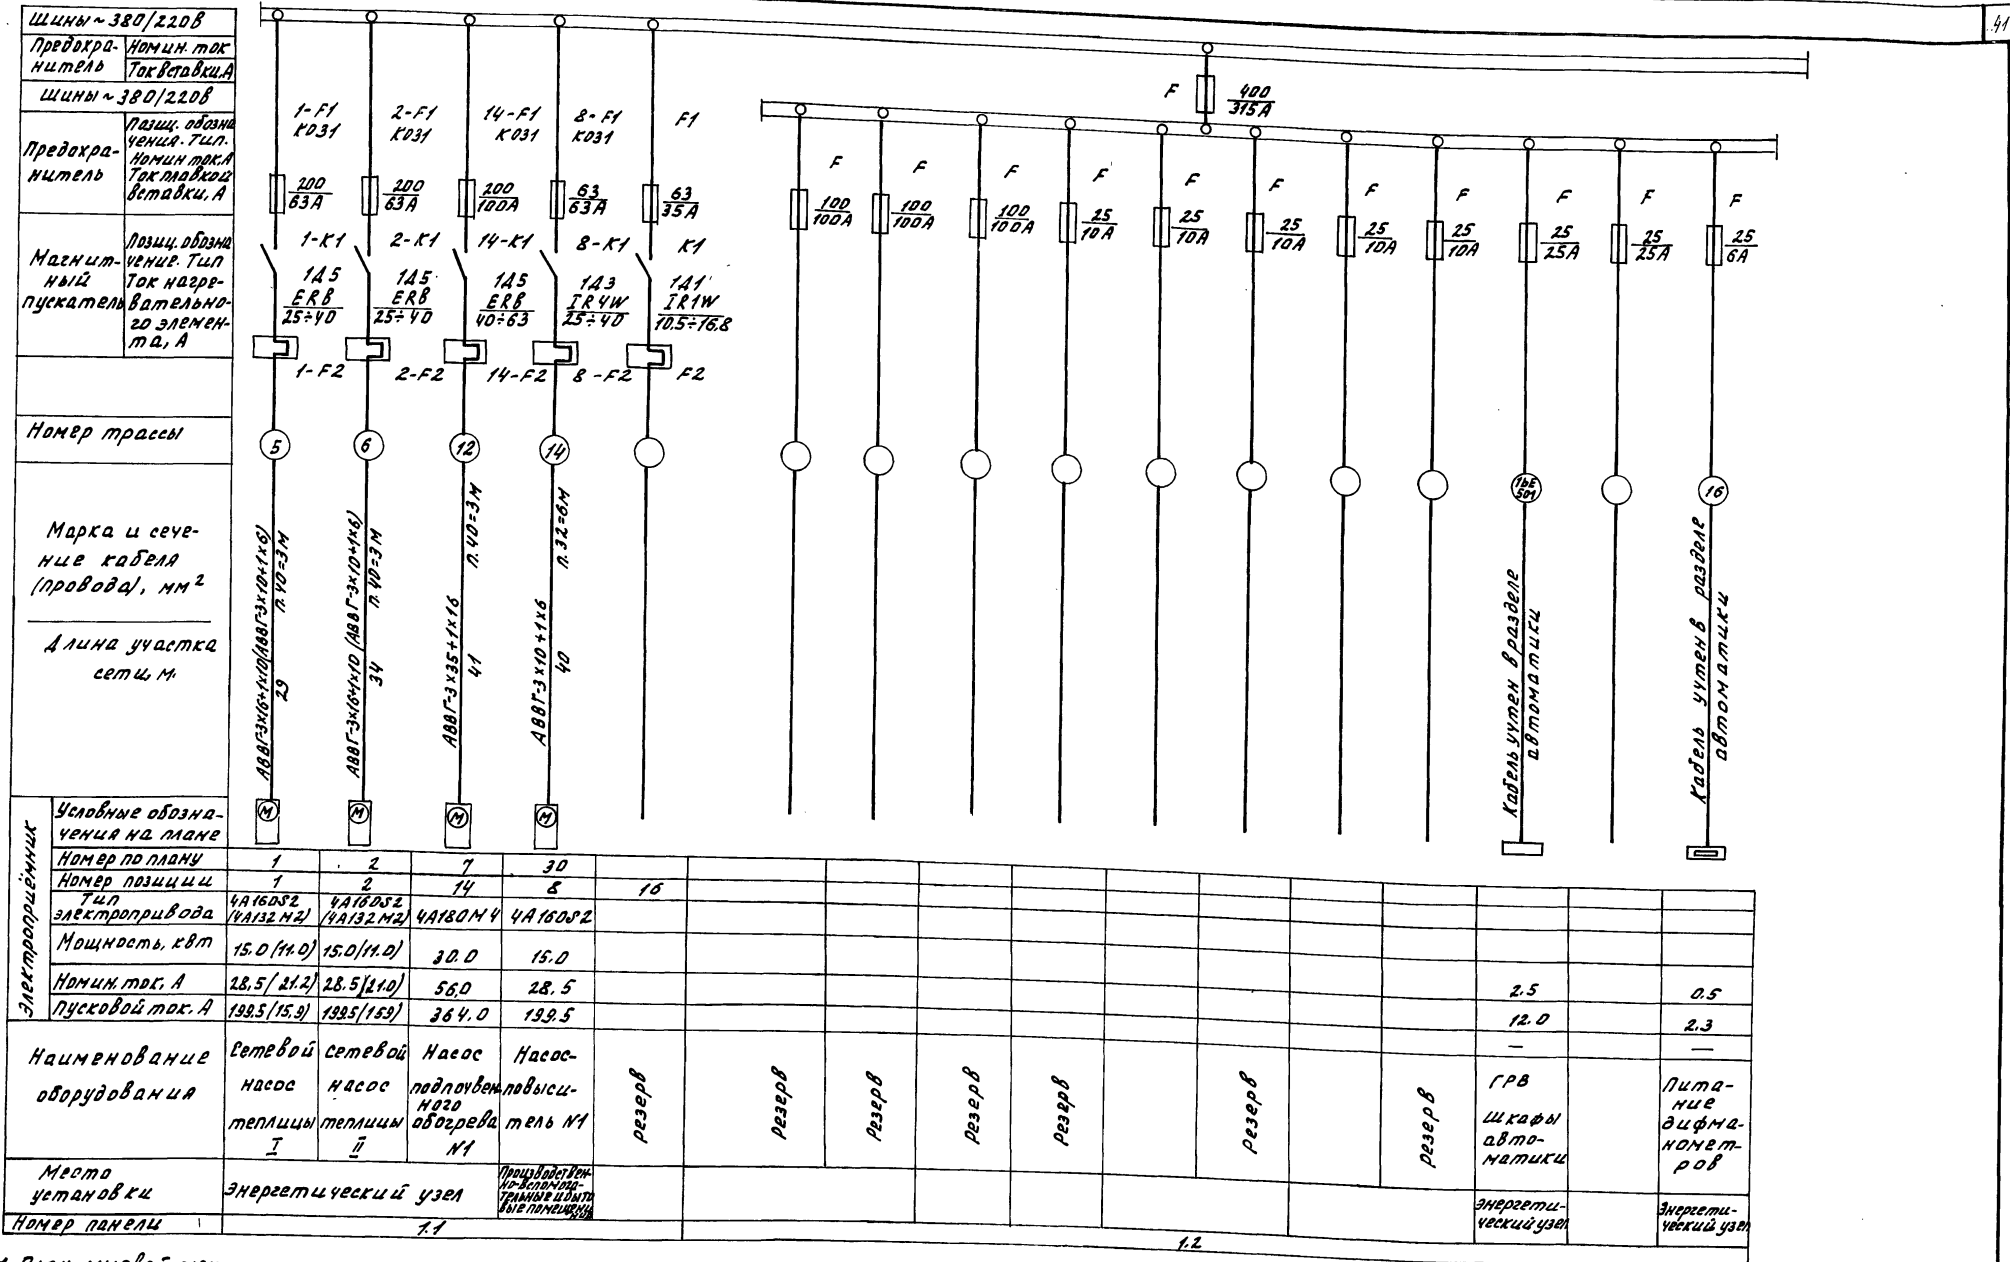 41
Шины ~ 380/220В
Предохра-
нитель
Номин. ток
Ток вставки, А
Шины ~ 380/220В
Предохра-
нитель
Позиц. обозна
чения. Тип.
Номин ток А
Ток плавкой
вставки, А
Магнит-
ный
пускатель
Позиц. обозна
чение. Тип
Ток нагре-
вательно-
го элемен-
та, А
Номер трассы
Марка и сече-
ние кабеля
(провода), мм²
Длина участка
сети, м.
1-F1
КО31
200
63А
1-К1
1А5
ERB
25÷40
1-F2
5
АВВГ-3х16+1х10 (АВВГ-3х10+1х6)
п.40=3м
29
М
2-F1
КО31
200
63А
2-К1
1А5
ERB
25÷40
2-F2
6
АВВГ-3х16+1х10 (АВВГ-3х10+1х6)
п.40=3м
34
М
14-F1
КО31
200
100А
14-К1
1А5
ERB
40÷63
14-F2
12
п.40=3м
АВВГ-3х35+1х16
41
М
8-F1
КО31
63
63А
8-К1
1А3
IR4W
25÷40
8-F2
14
п.32=6м
АВВГ-3х10+1х6
40
М
F1
63
35А
К1
1А1
IR1W
10.5÷16.8
F2
F
400
315А
F
100
100А
F
100
100А
F
100
100А
F
25
10А
F
25
10А
F
25
10А
F
25
10А
F
25
10А
F
25
25А
F
25
25А
F
25
6А
1ЬЕ
501
Кабель учтен в разделе
автоматики
16
Кабель учтен в разделе
автоматики
Электроприёмник
Условные обозна-
чения на плане
Номер по плану 1 2 7 30
Номер позиции 1 2 14 8 16
Тип
электропривода
4А160S2
(4А132М2)
4А160S2
(4А132М2)
4А180М4
4А160S2
Мощность, квт 15.0 (11.0) 15.0 (11.0) 30.0 15.0
Номин. ток, А 28.5 (21.2) 28.5 (21.0) 56.0 28.5 2.5 0.5
Пусковой ток. А 199.5 (15.9) 199.5 (159) 364.0 199.5 12.0 2.3
— —
Наименование
оборудования
Сетевой
насос
теплицы
I
Сетевой
насос
теплицы
II
Насос
подпочвен-
ного
обогрева
N1
Насос-
повыси-
тель N1
резерв
резерв
резерв
резерв
резерв
резерв
резерв
ГРВ
Шкафы
авто-
матики
Пита-
ние
дифма-
номет-
ров
Место
установки
Энергетический узел
Производствен-
но-вспомога-
тельные и быто
вые помещени
Энергети-
ческий узел
Энергети-
ческий узел
Номер панели 1.1 1.2